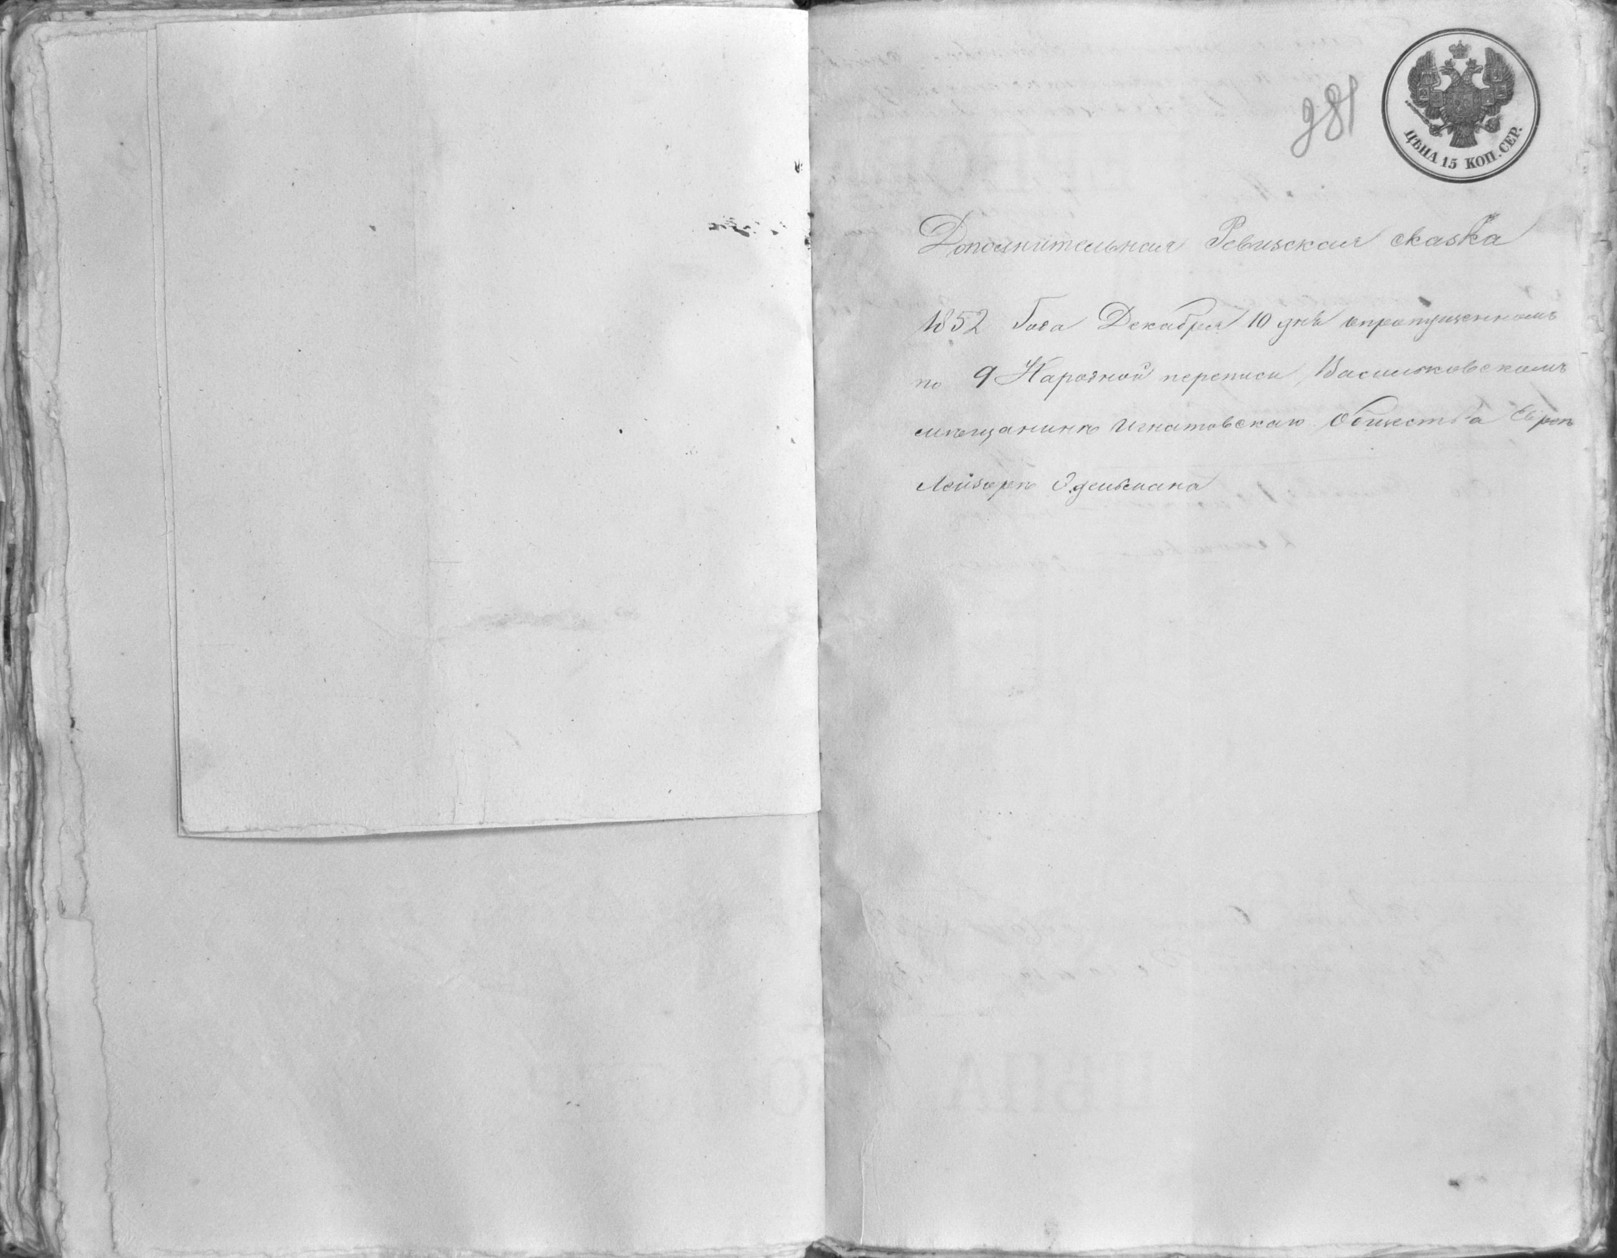 981
ЦѢНА 15 КОП. СЕР.
Дополнительная Ревизская сказка
1852 Года Декабря 10 дня опропущенномъ
по 9 Народной переписи Васильковскомъ
мѣщанинѣ Игнатовскаго Общества Евреѣ
Лейзерѣ Эдельмана